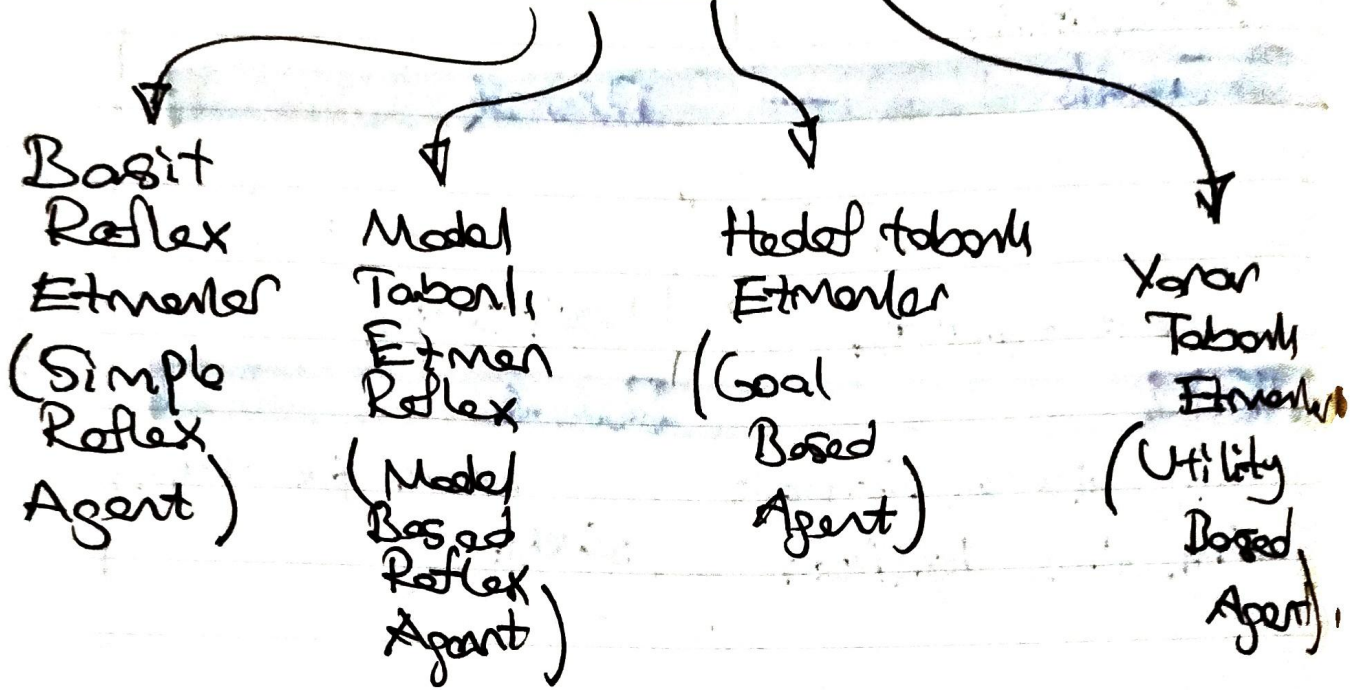 Basit
Reflex
Etmenler
(Simple
Reflex
Agent)
Model
Tabanlı
Etmen
Reflex
(Model
Based
Reflex
Agent)
Hedef tabanlı
Etmenler
(Goal
Based
Agent)
Yarar
Tabanlı
Etmenler
(Utility
Based
Agent)